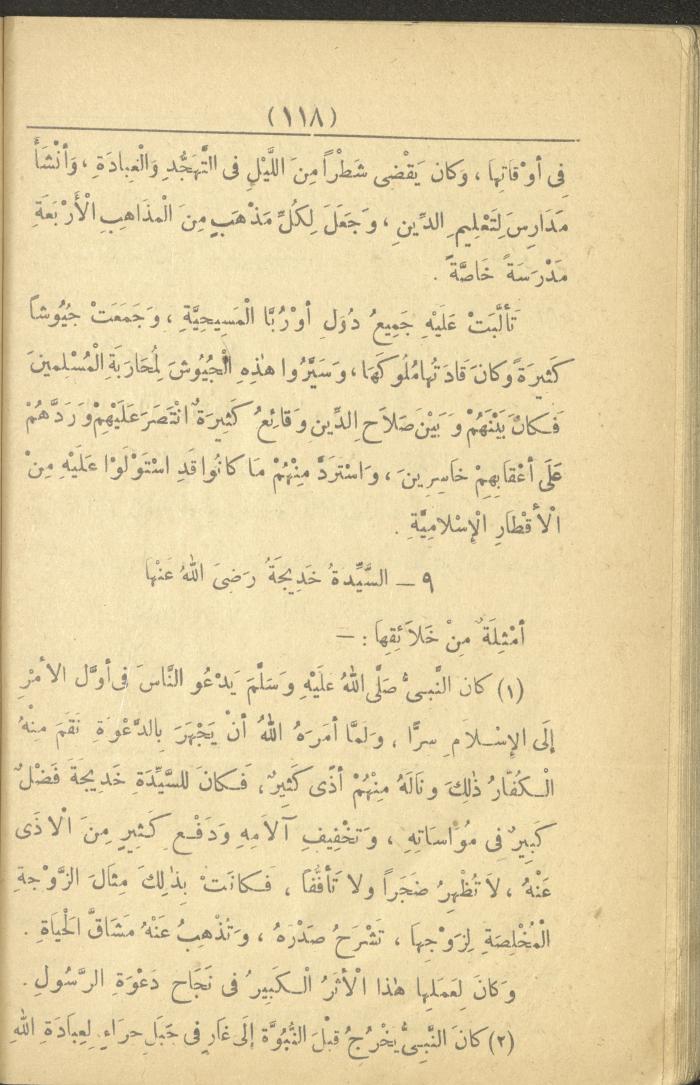 (١١٨)
فِى أَوْقَاتِهَا ، وَكَان يَقْضِى شَطْرًا مِنَ اللَّيْلِ فى التَّهَجُّدِ وَالْعِبادَةِ ، وَأَنْشَأَ
مَدَارِسَ لِتَعْلِيمِ الدِّينِ ، وَجَعَلَ لِكُلِّ مَذْهَبٍ مِنَ الْمذَاهِبِ الْأَرْبَعَةِ
مَدْرَسَةً خَاصَّةً .
تَأَلَّبَتْ عَلَيْهِ جَمِيعُ دُوَلِ أوْرُبَّا الْمَسِيحِيَّةِ ، وَجَمَعَتْ جُيُوشاً
كَثِيرَةً وَكانَ قَادَتُهَا مُلُوكَهَا ، وَسَيَّرُوا هٰذِهِ الْجُيُوشَ لِمُحَارَبَةِ الْمُسْلمِينَ
فَكانَ بَيْنَهُمْ وَبَيْنَ صَلاَحِ الدِّينِ وَقَائِعُ كَثِيرَةٌ انْتَصَرَ عَلَيْهِمْ وَرَدَّهُمْ
عَلَى أَعْقابِهِمْ خاسِرِينَ ، وَاسْتَرَدَّ مِنْهُمْ مَا كانُوا قَدِ اسْتَوْلَوْا عَلَيْهِ مِنْ
الْأَقْطَارِ الْإِسْلامِيَّةِ .
٩ — السَّيِّدةُ خَدِيجَةُ رَضِىَ اللهُ عَنْهَا
أَمْثِلَةٌ مِنْ خَلاَئِقِهَا : —
(١) كانَ النَّبىُّ صَلَّى اللهُ عَلَيْهِ وَسَلَّمَ يَدْعُو النَّاسَ فى أوَّل الأمْرِ
إلَى الإِسْلامِ سِرًّا ، وَلَمَّا أمَرَهُ اللهُ أنْ يَجْهَرَ بِالدَّعْوَةِ نَقَمَ مِنْهُ
الْكُفَّارُ ذٰلِكَ وَنَالَهُ مِنْهُمْ أذًى كَثِيرٌ ، فَكانَ للسَّيِّدَةِ خَدِيجَةَ فَضْلٌ
كَبِيرٌ فى مُوَاسَاتِهِ ، وَتَخْفِيفِ آلاَمِهِ وَدَفْعِ كَثِيرٍ مِنَ الْأذَى
عَنْهُ ، لاَ تُظْهِرُ ضَجَراً ولا تَأَفُّفًا ، فَكانَتْ بِذٰلِكَ مِثالَ الزَّوْجةِ
الْمُخْلِصَةِ لِزَوْجِهَا ، تَشْرَحُ صَدْرَهُ ، وَتُذْهِبُ عَنْهُ مَشَاقَّ الْحَيَاةِ .
وَكانَ لِعَمَلِهَا هٰذا الْأَثَرُ الْكَبِيرُ فى نَجَاحِ دَعْوَةِ الرَّسُولِ .
(٢) كَانَ النَّبِىُّ يَخْرُجُ قَبْلَ النُّبُوَّةِ إلَى غَارٍ فى جَبَلِ حِرَاءٍ لِعِبَادَةِ اللهِ